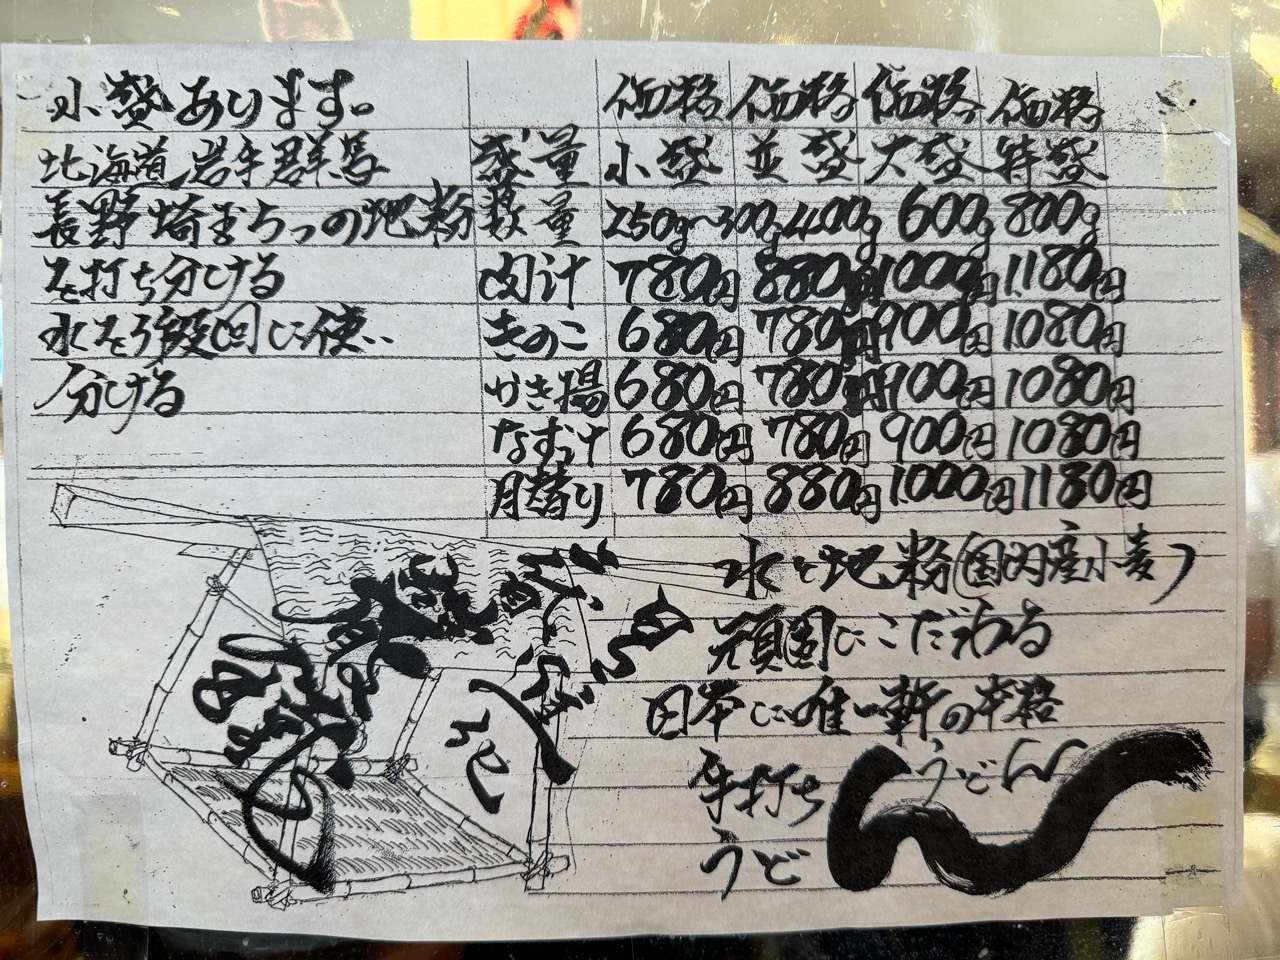 小盛あります。 価格 価格 価格 価格
北海道岩手群馬 盛量 小盛 並盛 大盛 特盛
長野埼玉ちっの地粉 数量 250g~300g 400g 600g 800g
を打ち分ける 肉汁 780円 880円 1000円 1180円
水を季段固に使い きのこ 680円 780円 900円 1080円
分ける かき揚 680円 780円 900円 1080円
なすつけ 680円 780円 900円 1080円
月替り 780円 880円 1000円 1180円
水と地粉(国内産小麦)
頑固にこだわる
日本に唯一軒の本格
手打ち うどん
うどん